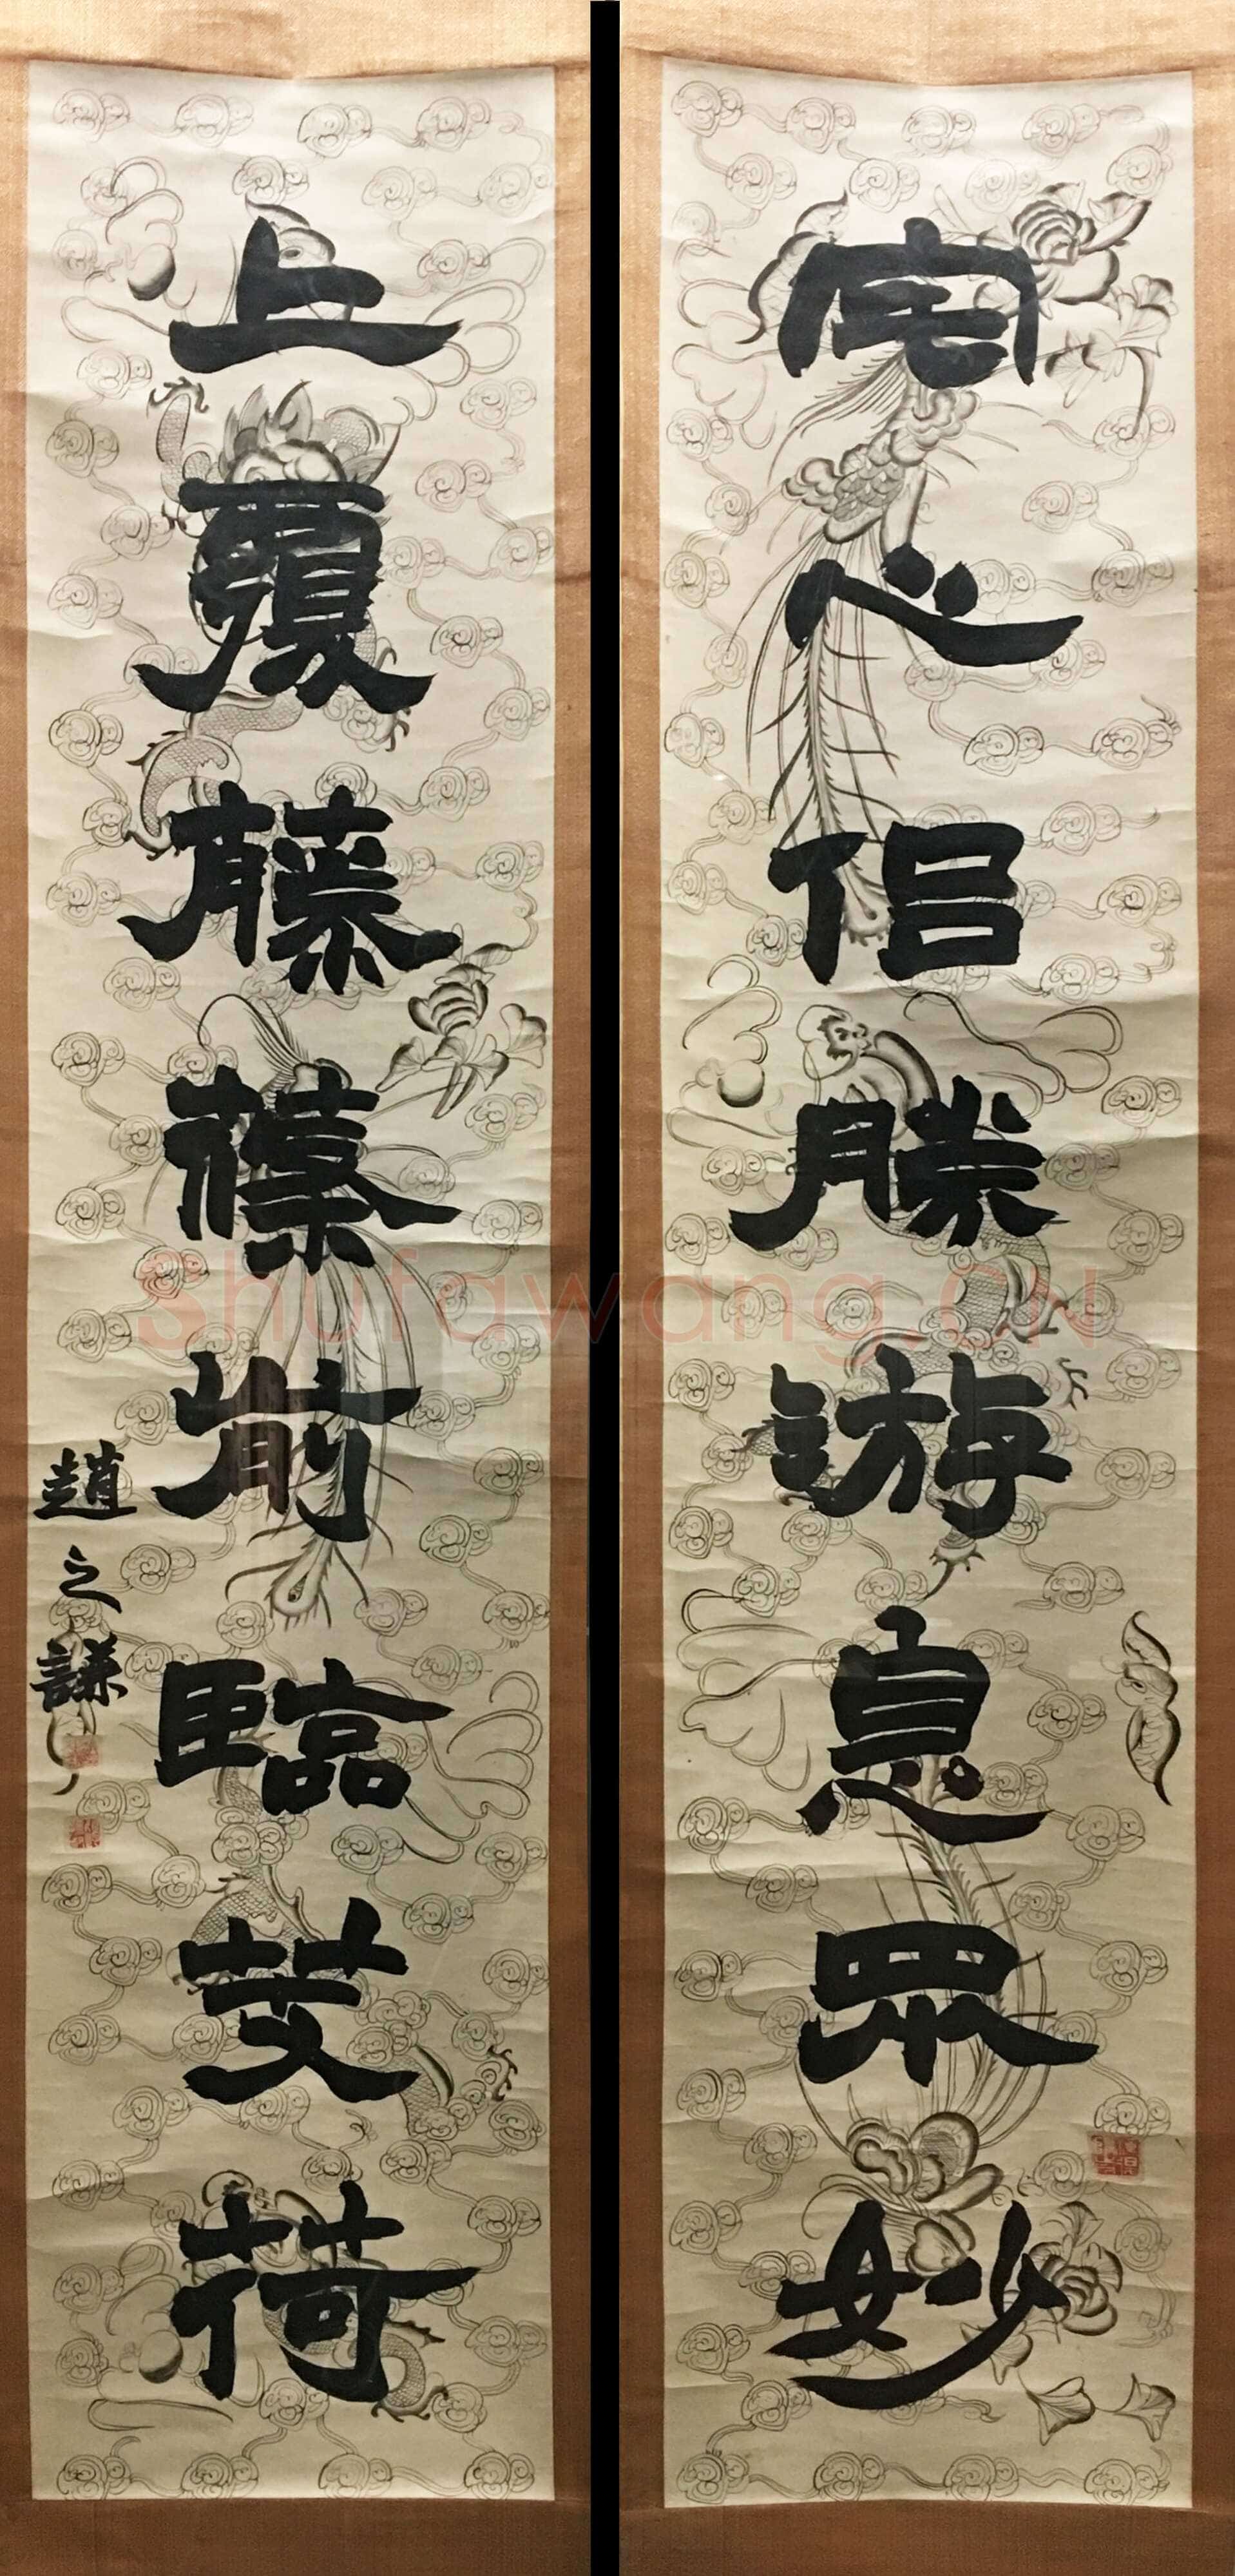 宅心侶勝游息眾妙
上覆藤篠前臨芰荷
趙之謙
Shufawang.CN